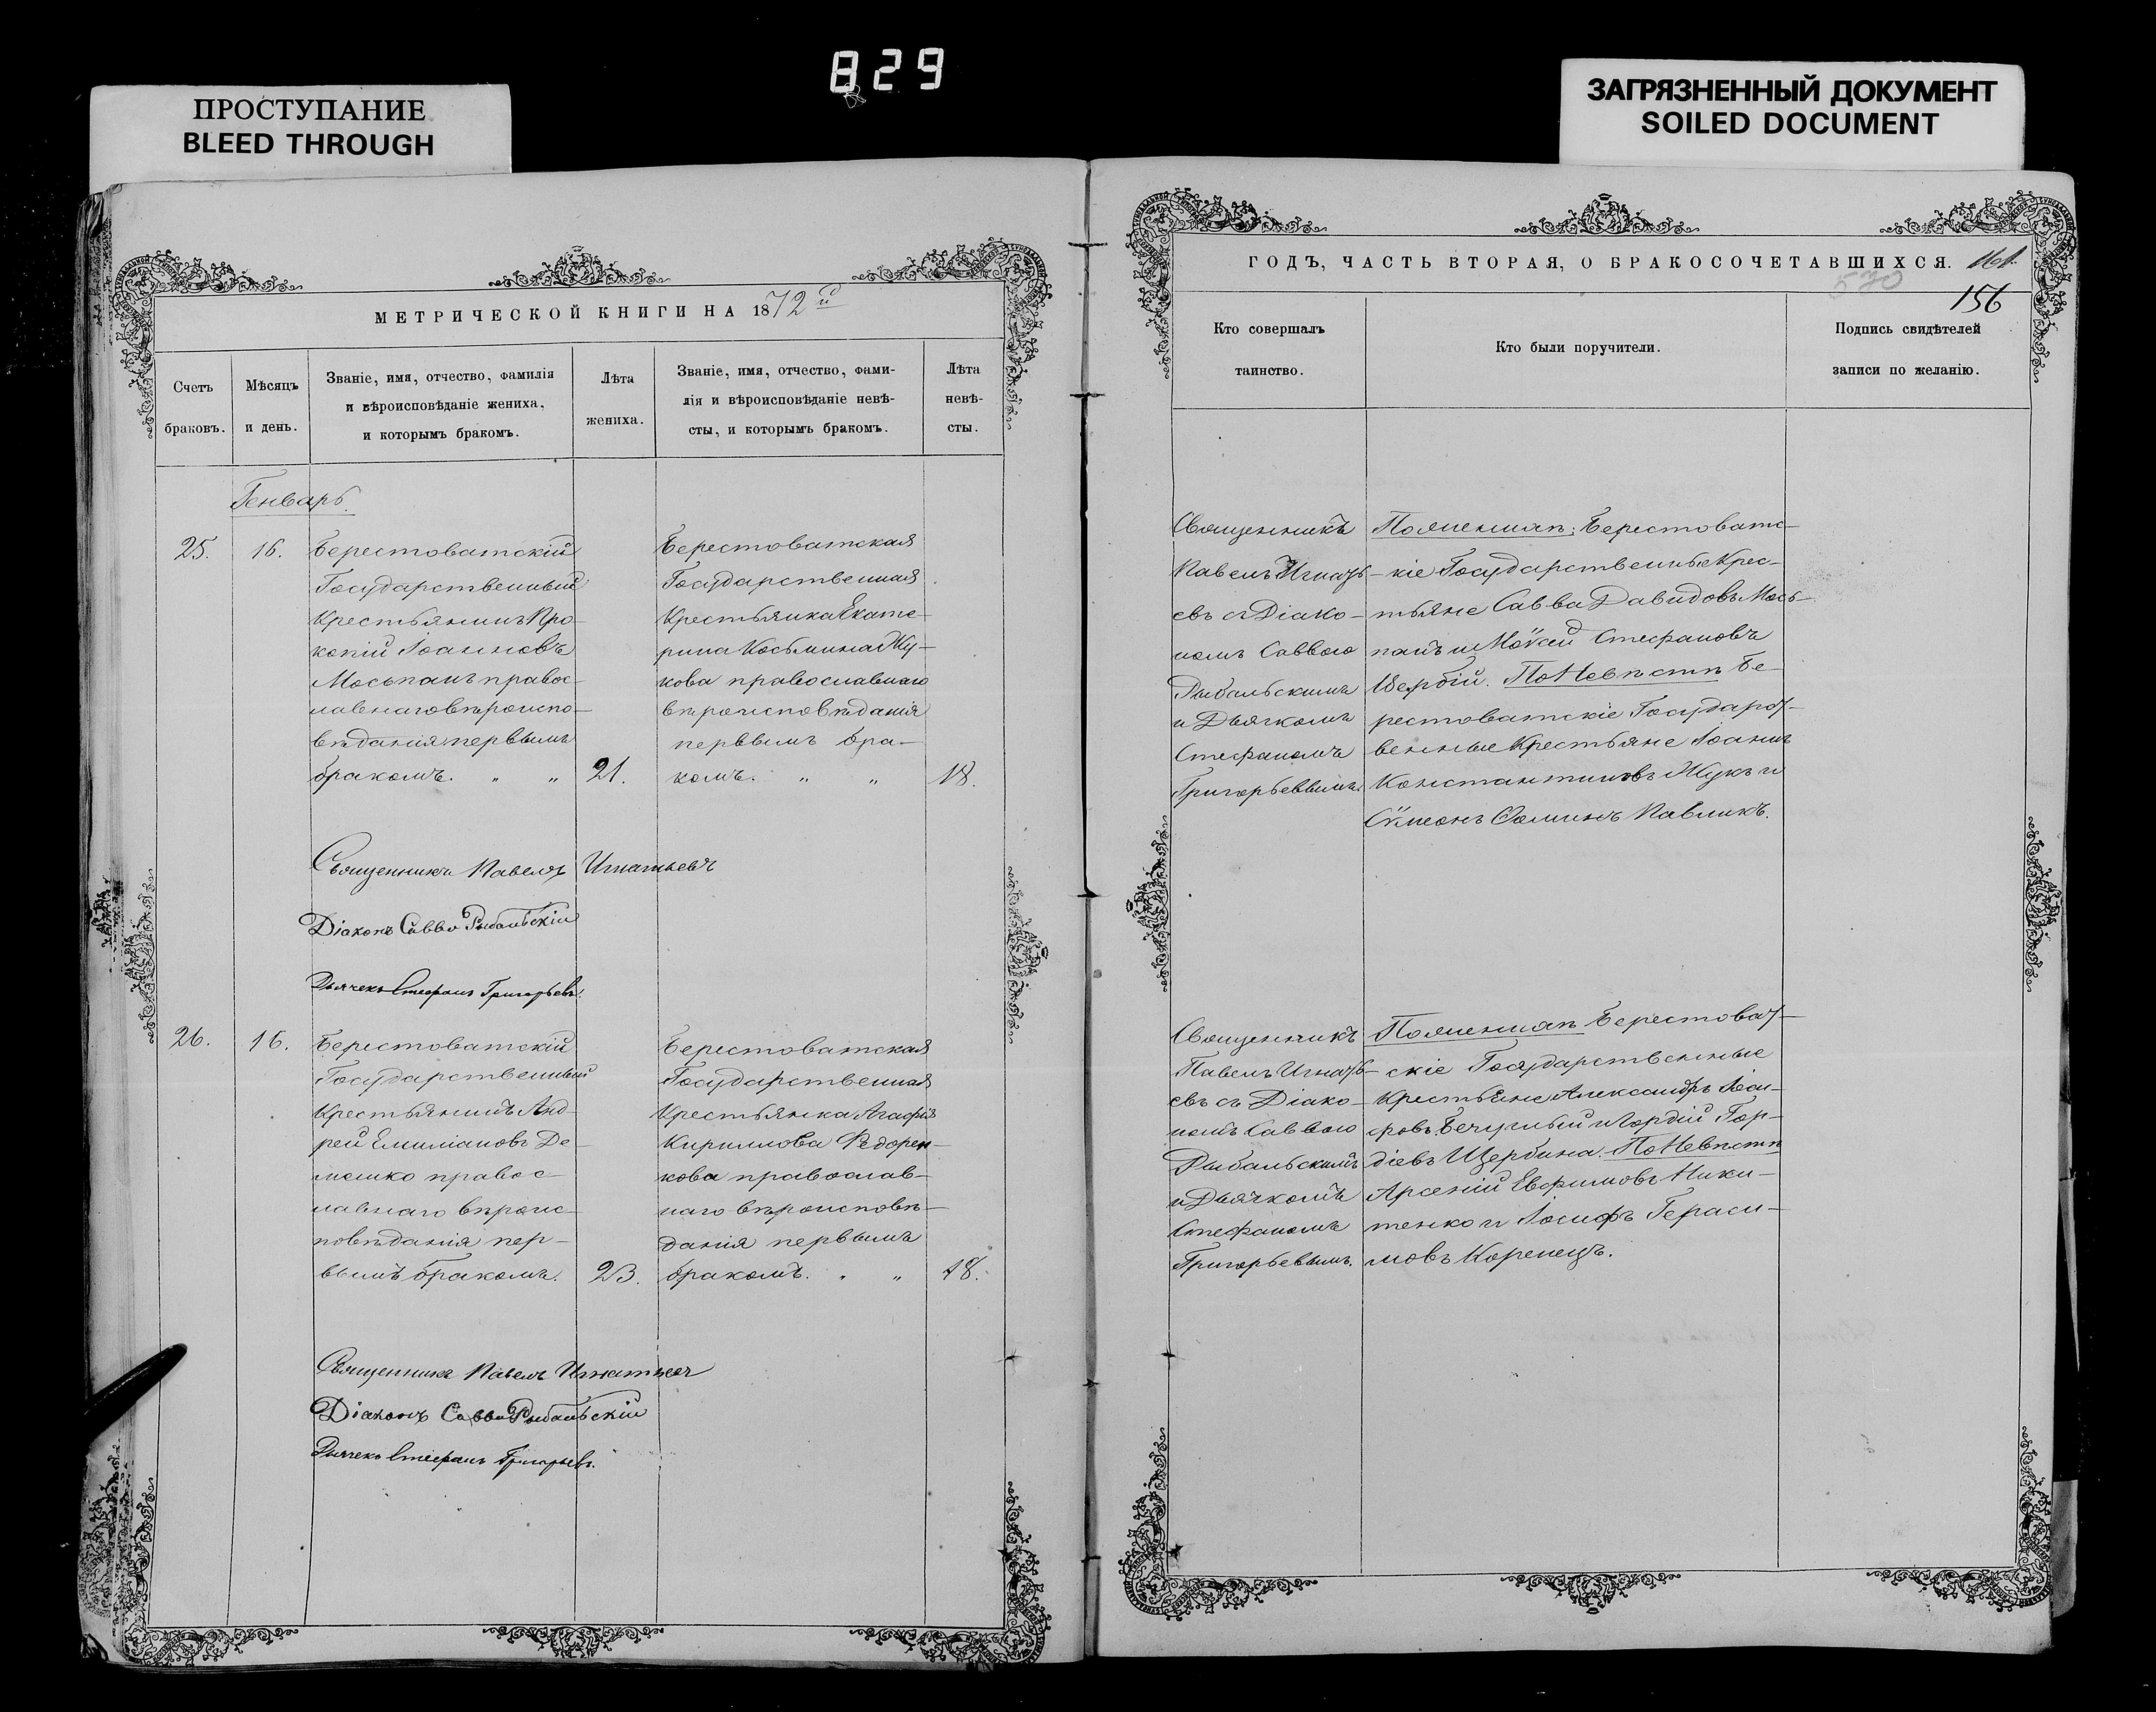 829
ПРОСТУПАНИЕ
BLEED THROUGH
ЗАГРЯЗНЕННЫЙ ДОКУМЕНТ
SOILED DOCUMENT
МЕТРИЧЕСКОЙ КНИГИ НА 1872 й
Счетъ
браковъ.
Мѣсяцъ
и день.
Званіе, имя, отчество, фамилія
и вѣроисповѣданіе жениха,
и которымъ бракомъ.
Лѣта
жениха.
Званіе, имя, отчество, фами-
лія и вѣроисповѣданіе невѣ-
сты, и которымъ бракомъ.
Лѣта
невѣ-
сты.
Генварь.
25.
16.
Берестоватскій
Государственный
Крестьянинъ Про-
копій Іоанновъ
Москпанъ правос-
лавнаго вѣроиспо-
вѣданія первымъ
бракомъ. " "
21.
Берестоватская
Государственная
Крестьянка Екате-
рина Косьмина Жу-
кова православнаго
вѣроисповѣданія
первымъ бра-
комъ. " "
18.
Священникъ Павелъ Игнатьевъ
Діаконъ Савва Рыбальскій
Дьячекъ Стефанъ Григорьевъ.
26.
16.
Берестоватскій
Государственный
Крестьянинъ Анд-
рей Емиліановъ Де-
мешко правос-
лавнаго вѣроис-
повѣданія пер-
вымъ бракомъ.
23.
Берестоватская
Государственная
Крестьянка Агафія
Кириллова Ѳедорен-
кова православ-
наго вѣроисповѣ-
данія первымъ
бракомъ. " "
18.
Священникъ Павелъ Игнатьевъ
Діаконъ Савва Рыбальскій
Дьячекъ Стефанъ Григорьевъ.
ГОДЪ, ЧАСТЬ ВТОРАЯ, О БРАКОСОЧЕТАВШИХСЯ. 161.
570
156
Кто совершалъ
таинство.
Кто были поручители.
Подпись свидѣтелей
записи по желанію.
Священникъ
Павелъ Игнать-
евъ съ Діако-
номъ Саввою
Рыбальскимъ
и Дьячкомъ
Стефаномъ
Григорьевымъ.
По женихѣ: Берестоватс-
кіе Государственные Крес-
тьяне Савва Давидовъ Мось-
панъ и Моѵсей Стефановъ
Щербій. По Невѣстѣ Бе-
рестоватскіе Государст-
венные Крестьяне Іоаннъ
Константиновъ Жукъ и
Сѵмеонъ Ѳоминъ Павликъ.
Священникъ
Павелъ Игнать-
евъ съ Діако-
номъ Саввою
Рыбальскимъ
и Дьячкомъ
Стефаномъ
Григорьевымъ.
По женихѣ Берестоват-
скіе Государственные
Крестьяне Александръ Іоси-
фовъ Бечуглый и Гордій Гор-
діевъ Щербина. По Невѣстѣ
Арсеній Евфимовъ Ники-
тенко и Іосифъ Гераси-
мовъ Коренецъ.